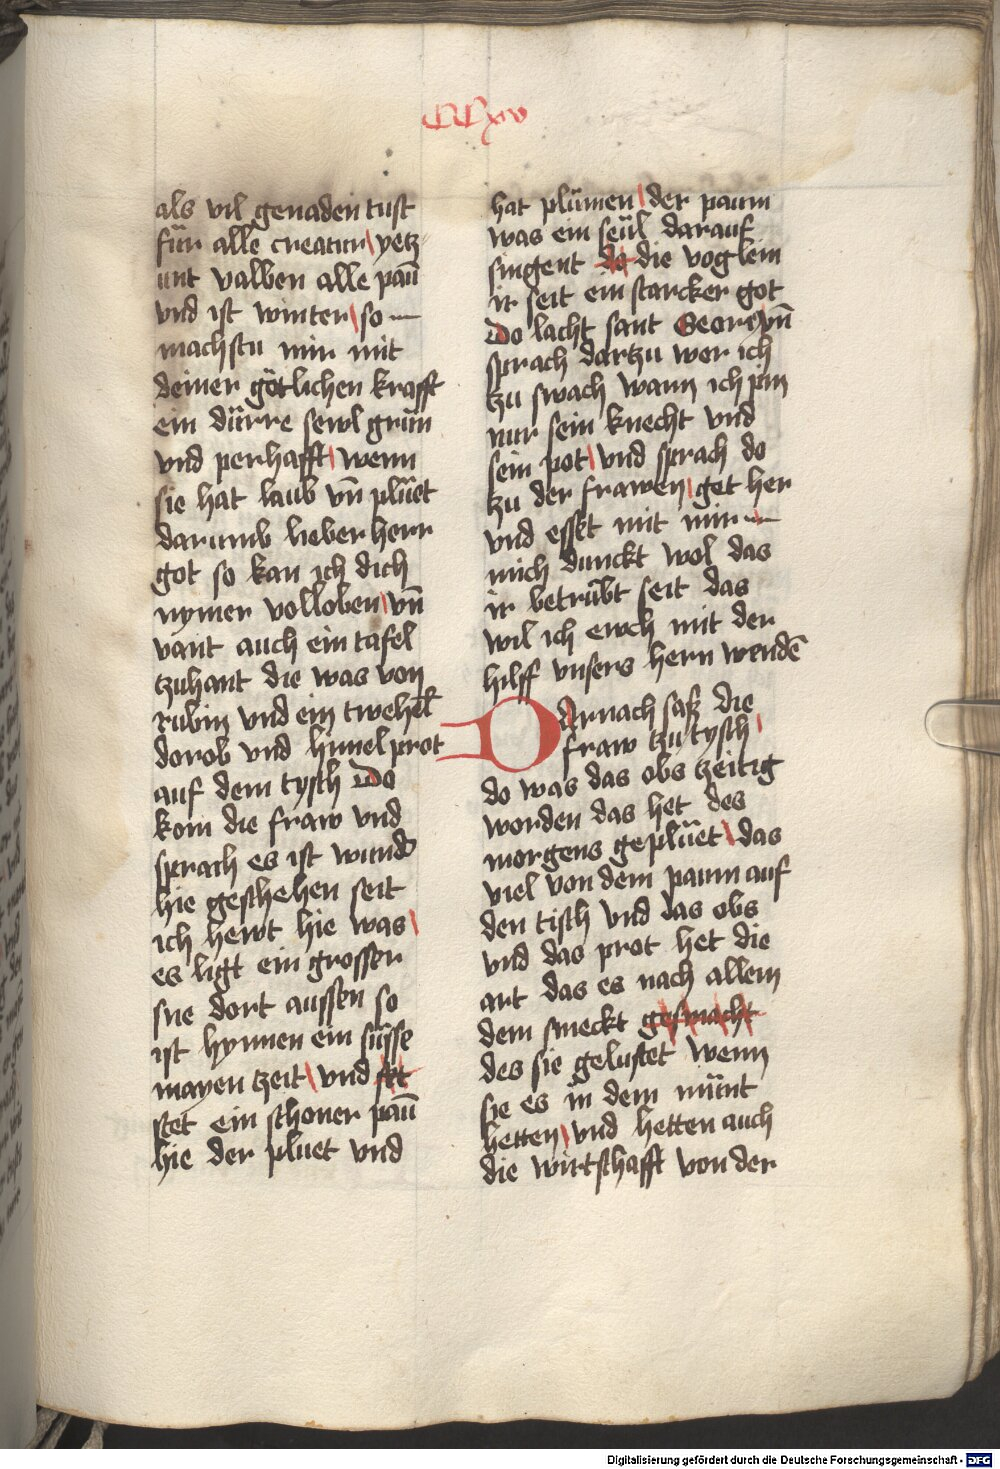 CCxv
als vil genaden tust
für alle creatur yetz
unt valben alle paū
vnd ist winter so
machstu mir mit
deiner götlichen krafft
ein dürre sewl grün
vnd perhafft wenn
sie hat laub vn̄ plüet
darumb lieber herr
got so kan ich dich
nymer volloben vn̄
vant auch ein tafel
tzuhant die was von
rubin vnd ein twehel
dorob vnd himel prot
auf dem tysch Do
kom die fraw vnd
sprach es ist wund
hie geschehen seit
ich hewt hie was
es ligt ein grosser
sne dort aussen so
ist hynnen ein süsse
mayen tzeit vnd
stet ein schoner paū
hie der pluet vnd
hat plümen der paum
was ein seül darauf
singent do die voglein
ir seit ein starcker got
Do lacht sant Georg vn̄
sprach dartzu wer ich
tzu swach wann ich pin
nur sein knecht vnd
sein pot vnd sprach do
tzu der frawen get her
vnd esset mit mir
mich dunckt wol das
ir betrübt seit das
wil ich ewch mit der
hilff vnsers hern wendē
Darnach saß die
fraw tzu tysch
do was das obs tzeitig
worden das het des
morgens geplüet das
viel von dem paum auf
den tisch vnd das obs
vnd das prot het die
art das es nach allem
dem smeckt gesmacht
des sie gelustet wenn
sie es in dem münt
hetten vnd hetten auch
die wirtschafft von der
Digitalisierung gefördert durch die Deutsche Forschungsgemeinschaft - DFG